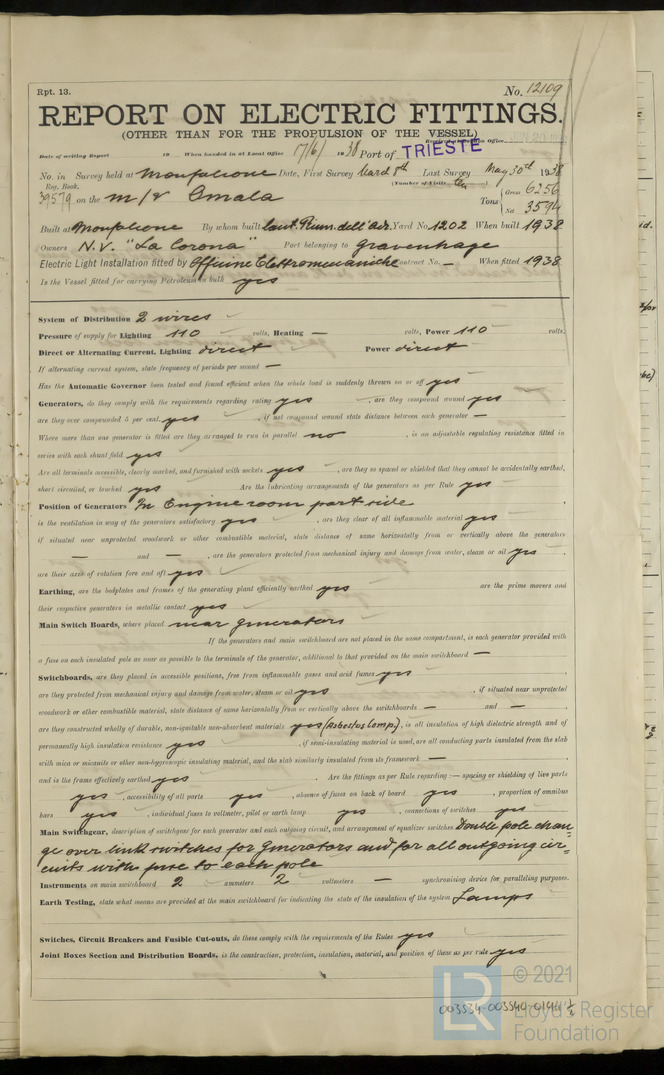 Rpt. 13.
No. 12109
REPORT ON ELECTRIC FITTINGS.
(OTHER THAN FOR THE PROPULSION OF THE VESSEL)
Date of writing Report 19 When handed in at Local Office 17/6/ 1938 Port of TRIESTE
No. in Survey held at Monfalcone Date, First Survey Last Survey May 30th 1938
Reg. Book. (Number of Visits )
39579 on the m/v Omala Tons Gross 6256
Net 3594
Built at Monfalcone By whom built Cant. Riun. dell'Adr. Yard No. 1202 When built 1938
Owners N.V. "La Corona" Port belonging to Gravenhage
Electric Light Installation fitted by Officine Elettromeccaniche Contract No. — When fitted 1938
Is the Vessel fitted for carrying Petroleum in bulk yes
System of Distribution 2 wires
Pressure of supply for Lighting 110 volts, Heating — volts, Power 110 volts.
Direct or Alternating Current, Lighting direct Power direct
If alternating current system, state frequency of periods per second —
Has the Automatic Governor been tested and found efficient when the whole load is suddenly thrown on or off yes
Generators, do they comply with the requirements regarding rating yes , are they compound wound yes
are they over compounded 5 per cent. yes , if not compound wound state distance between each generator —
Where more than one generator is fitted are they arranged to run in parallel no , is an adjustable regulating resistance fitted in
series with each shunt field yes
Are all terminals accessible, clearly marked, and furnished with sockets yes , are they so spaced or shielded that they cannot be accidentally earthed,
short circuited, or touched yes Are the lubricating arrangements of the generators as per Rule yes
Position of Generators In Engine room port side
is the ventilation in way of the generators satisfactory yes , are they clear of all inflammable material yes
if situated near unprotected woodwork or other combustible material, state distance of same horizontally from or vertically above the generators
— and — , are the generators protected from mechanical injury and damage from water, steam or oil yes
are their axes of rotation fore and aft yes
Earthing, are the bedplates and frames of the generating plant efficiently earthed yes are the prime movers and
their respective generators in metallic contact yes
Main Switch Boards, where placed near generators
If the generators and main switchboard are not placed in the same compartment, is each generator provided with
a fuse on each insulated pole as near as possible to the terminals of the generator, additional to that provided on the main switchboard —
Switchboards, are they placed in accessible positions, free from inflammable gases and acid fumes yes
are they protected from mechanical injury and damage from water, steam or oil yes , if situated near unprotected
woodwork or other combustible material, state distance of same horizontally from or vertically above the switchboards — and —
are they constructed wholly of durable, non-ignitable non-absorbent materials yes (Asbestos Comp.), is all insulation of high dielectric strength and of
permanently high insulation resistance yes , if semi-insulating material is used, are all conducting parts insulated from the slab
with mica or micanite or other non-hygroscopic insulating material, and the slab similarly insulated from its framework —
and is the frame effectively earthed yes . Are the fittings as per Rule regarding:— spacing or shielding of live parts
yes , accessibility of all parts yes , absence of fuses on back of board yes , proportion of omnibus
bars yes , individual fuses to voltmeter, pilot or earth lamp yes , connections of switches yes
Main Switchgear, description of switchgear for each generator and each outgoing circuit, and arrangement of equalizer switches Double pole chan-
ge over link switches for generators and for all outgoing cir-
cuits with fuse to each pole
Instruments on main switchboard 2 ammeters 2 voltmeters — synchronising device for paralleling purposes.
Earth Testing, state what means are provided at the main switchboard for indicating the state of the insulation of the system Lamps
Switches, Circuit Breakers and Fusible Cut-outs, do these comply with the requirements of the Rules yes
Joint Boxes Section and Distribution Boards, is the construction, protection, insulation, material, and position of these as per rule yes
© 2021
Lloyd's Register
Foundation
003534-003540-0144 1/2